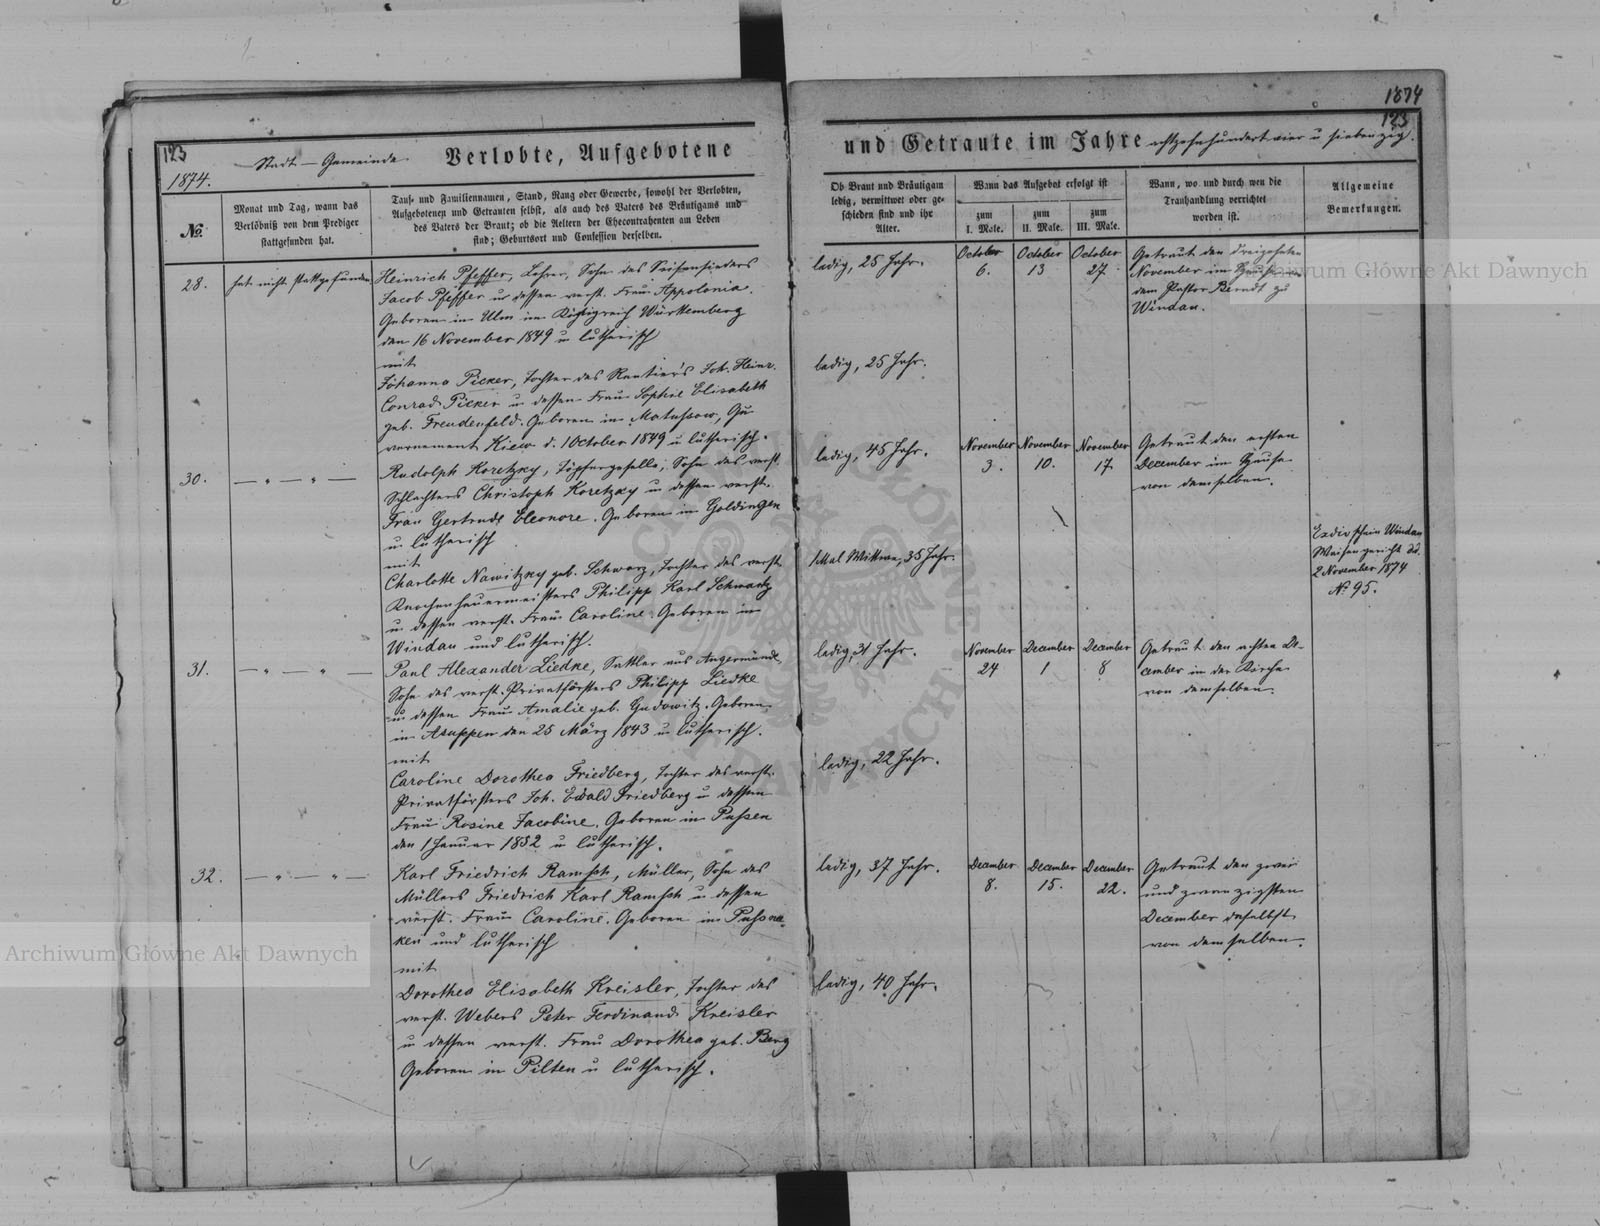 123
1874.
Stadt-Gemeinde Verlobte, Aufgebotene
№
Monat und Tag, wann das
Verlöbniß von dem Prediger
stattgefunden hat.
Tauf- und Familiennamen, Stand, Rang oder Gewerbe, sowohl der Verlobten,
Aufgebotenen und Getrauten selbst, als auch des Vaters des Bräutigams und
des Vaters der Braut; ob die Aeltern der Ehecontrahenten am Leben
sind; Geburtsort und Confession derselben.
28.
hat nicht stattgefunden
Heinrich Pfeffer, Lehrer, Sohn des Seifensieders
Jacob Pfeffer u dessen verst. Frau Appolonia.
Geboren in Ulm im Königreich Württemberg
den 16 November 1849 u lutherisch
mit
Johanna Picker, Tochter des Rentier's Joh. Heinr.
Conrad Picker u dessen Frau Sophie Elisabeth
geb. Freudenfeld. Geboren in Matussow, Gu-
vernement Kiew d. 1 October 1849 u lutherisch.
30.
— " — " —
Rudolph Koretzky, Töpfergeselle, Sohn des verst.
Schlachters Christoph Koretzky u dessen verst.
Frau Gertrude Eleonore. Geboren in Goldingen
u lutherisch
mit
Charlotte Nawitzky geb. Schwarz, Tochter des verst.
Knochenhauermeisters Philipp Karl Schwartz
u dessen verst. Frau Caroline. Geboren in
Windau und lutherisch.
31.
— " — " —
Paul Alexander Liedke, Sattler aus Angermünde,
Sohn des verst. Privatförsters Philipp Liedke
u dessen Frau Amalie geb. Gudowitz. Geboren
in Asuppen den 25 März 1843 u lutherisch.
mit
Caroline Dorothea Friedberg, Tochter des verst.
Privatförsters Joh. Ewald Friedberg u dessen
Frau Rosine Jacobine. Geboren in Passen
den 1 Januar 1852 u lutherisch.
32.
— " — " —
Karl Friedrich Ramsch, Müller, Sohn des
Müllers Friedrich Karl Ramsch u dessen
verst. Frau Caroline. Geboren in
ken und lutherisch
mit
Dorothea Elisabeth Kreisler, Tochter des
verst. Webers Peter Ferdinand Kreisler
u dessen verst. Frau Dorothea geb. Berg
Geboren in Pilten u lutherisch.
1874
123
und Getraute im Jahre achtzehnhundert vier u siebenzig.
Ob Braut und Bräutigam
ledig, verwittwet oder ge-
schieden sind und ihr
Alter.
Wann das Aufgebot erfolgt ist
zum
I. Male.
zum
II. Male.
zum
III. Male.
Wann, wo und durch wen die
Trauhandlung verrichtet
worden ist.
Allgemeine
Bemerkungen.
ladig, 25 Jahr.
October
6.
October
13
October
27
Getraut den dreizehnten
November im Hause von
dem Pastor Berndt zu
Windau.
ledig, 25 Jahr.
ledig, 45 Jahr.
November
3.
November
10.
November
17.
Getraut den ersten
December im Hause
von demselben.
1 Mal Wittwe, 35 Jahr.
Exdivschein Windau
Waisengericht dd.
2 November 1874
№ 95.
ledig, 31 Jahr.
November
24
December
1
December
8
Getraut den achten De-
cember in der Kirche
von demselben.
ledig, 22 Jahr.
ledig, 37 Jahr.
December
8.
December
15.
December
22.
Getraut den zwei
und zwanzigsten
December daselbst
von demselben.
ledig, 40 Jahr.
Archiwum Główne Akt Dawnych
Archiwum Główne Akt Dawnych